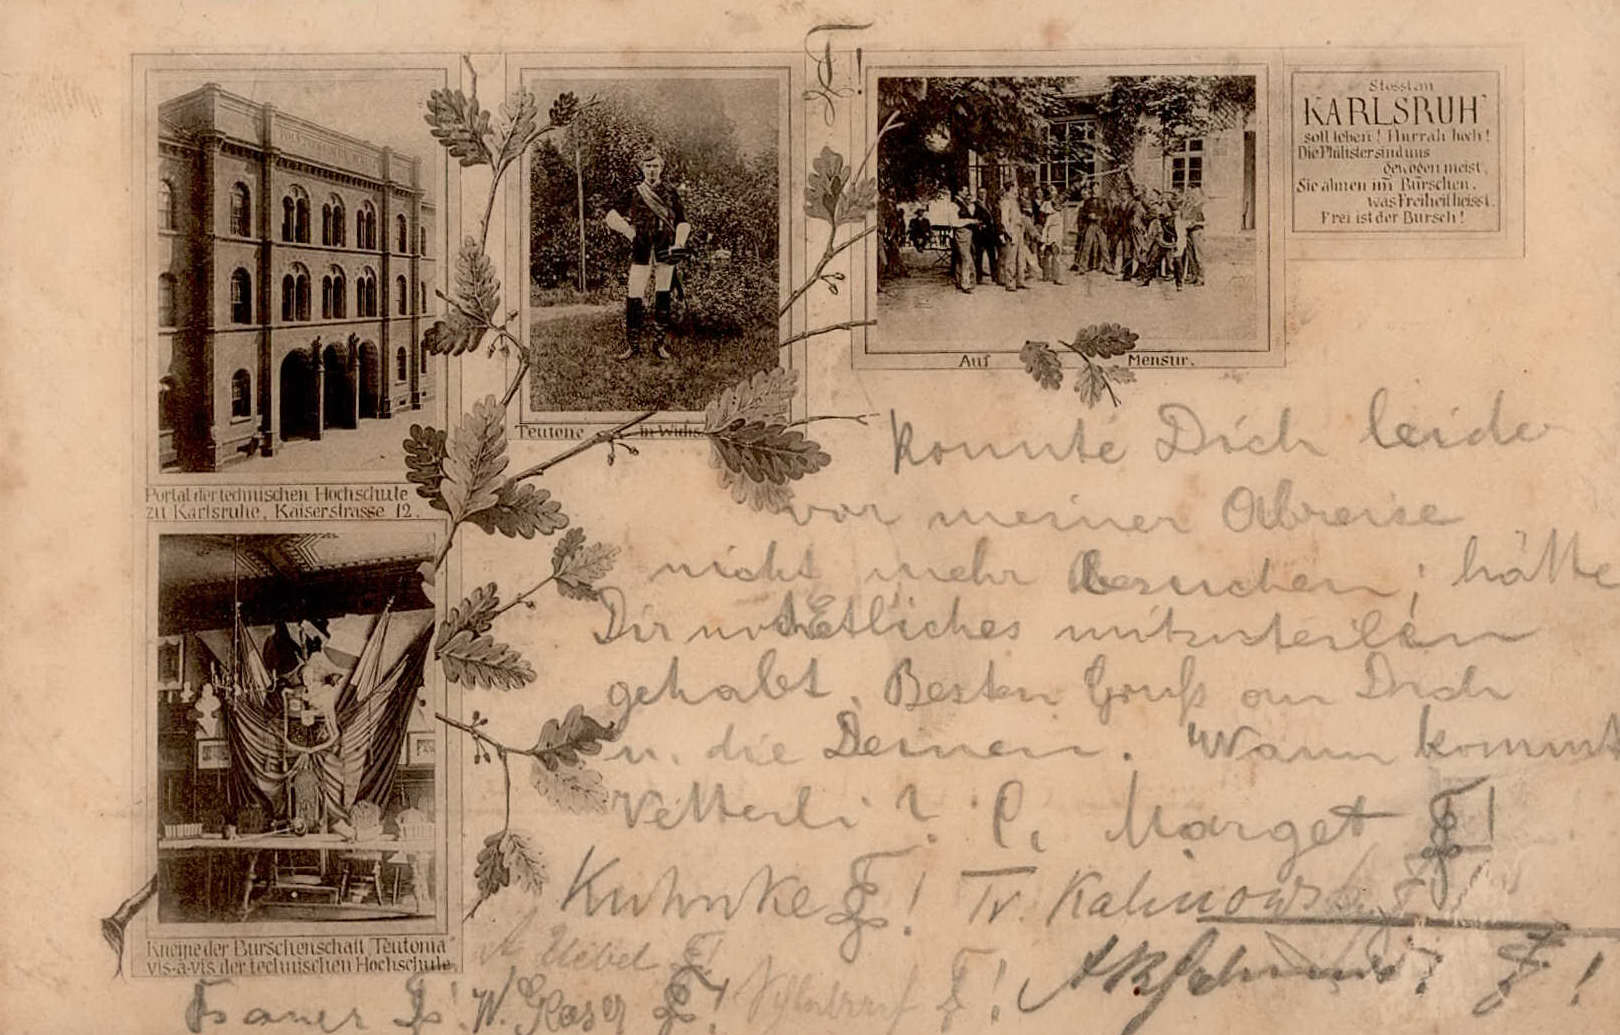 Stosst an
KARLSRUH'
soll leben! Hurrah hoch!
Die Philister sind uns
gewogen meist,
Sie ahnen im Burschen,
was Freiheit heisst.
Frei ist der Bursch!
Auf Mensur.
Teutone in Wichs.
Portal der technischen Hochschule
zu Karlsruhe, Kaiserstrasse 12.
Kneipe der Burschenschaft "Teutonia"
vis-à-vis der technischen Hochschule.
konnte Dich leider
vor meiner Abreise
nicht mehr besuchen; hätte
Dir noch Etliches mitzuteilen
gehabt. Besten Gruß an Dich
u. die Deinen. Wann kommt
Vetterli? C. Marget
Kuhnke Tr. Kalinowsky
Uebel
W. Glaser